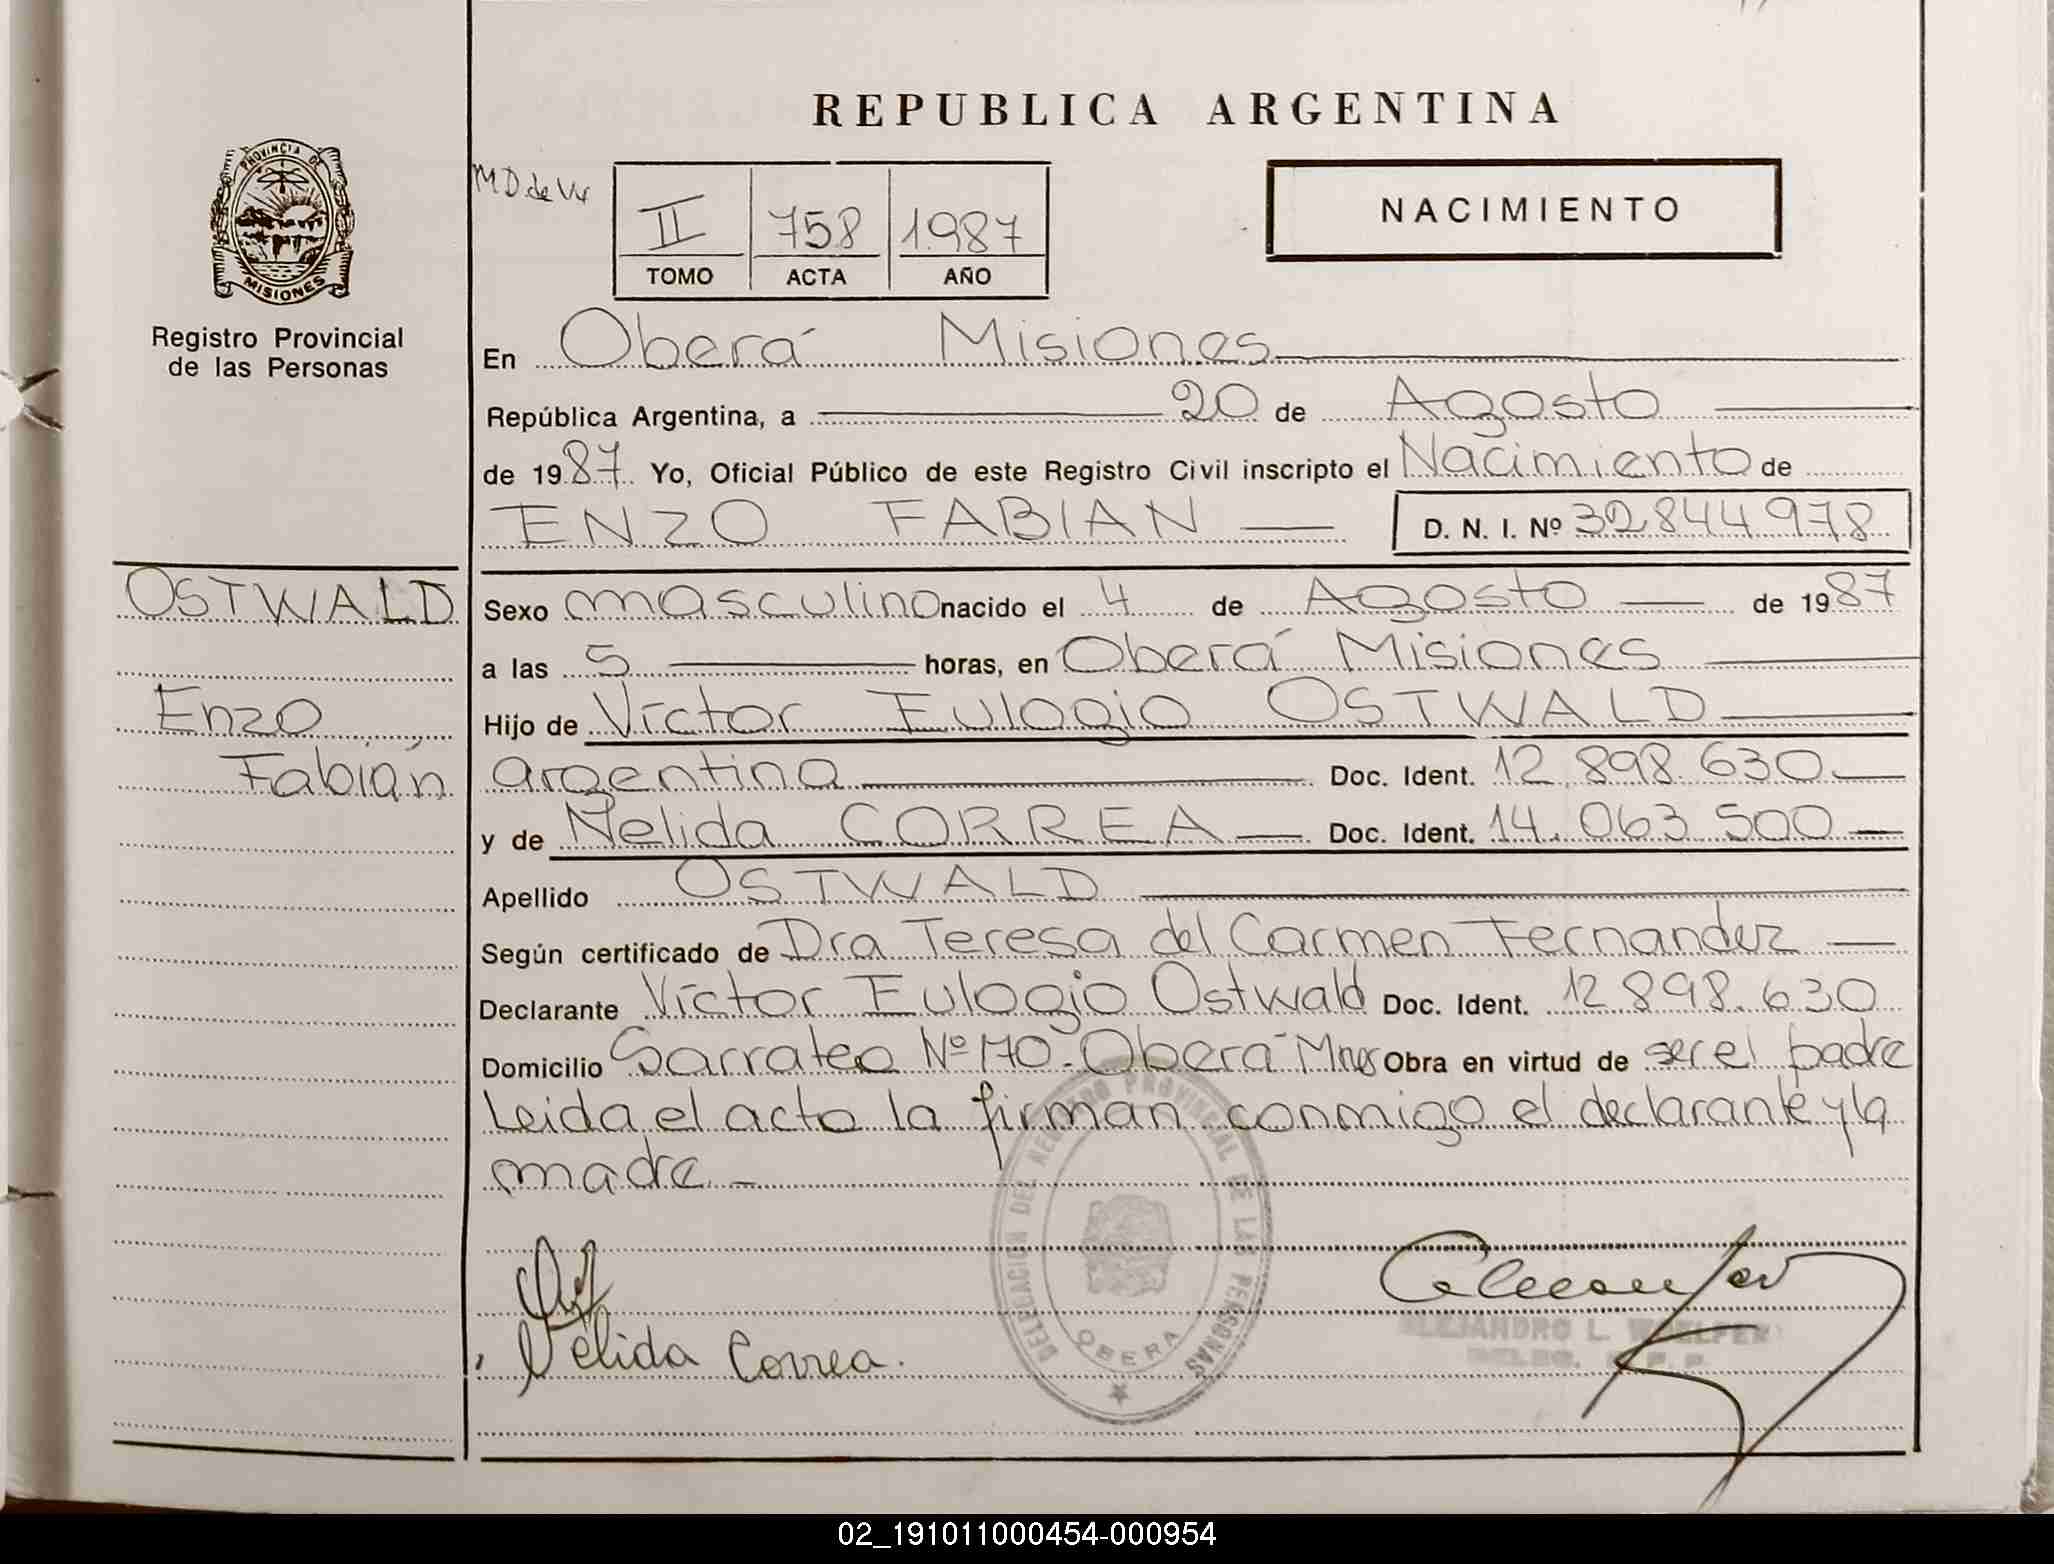 REPUBLICA ARGENTINA
PROVINCIA DE
MISIONES
Registro Provincial
de las Personas
M D de
II 758 1987
TOMO ACTA AÑO
NACIMIENTO
En Oberá Misiones
República Argentina, a 20 de Agosto
de 1987. Yo, Oficial Público de este Registro Civil inscripto el Nacimiento de
ENZO FABIAN D. N. I. Nº 32844978
OSTWALD
Enzo
Fabián
Sexo masculino nacido el 4 de Agosto de 1987
a las 5 horas, en Oberá Misiones
Hijo de Víctor Eulogio OSTWALD
argentina Doc. Ident. 12.898.630
y de Nelida CORREA Doc. Ident. 14.063.500
Apellido OSTWALD
Según certificado de Dra Teresa del Carmen Fernandez
Declarante Víctor Eulogio Ostwald Doc. Ident. 12.898.630
Domicilio Sarrateo Nº 170. Oberá Mnes Obra en virtud de ser el padre
Leida el acto la firman conmigo el declarante y la
madre
DELEGACION DEL REGISTRO PROVINCIAL DE LAS PERSONAS
OBERA
Nélida Correa.
ALEJANDRO L.
02_191011000454-000954